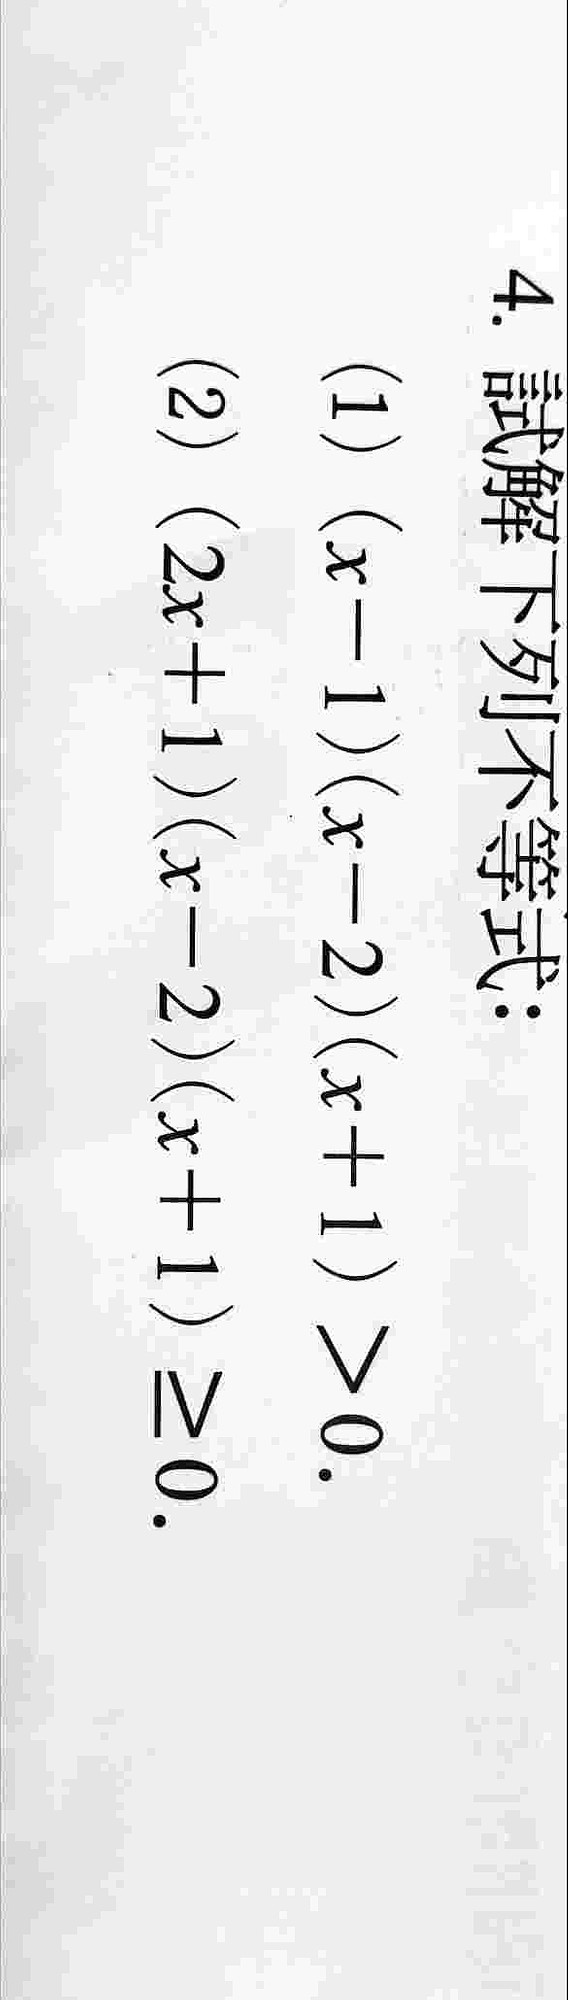 4. 試解下列不等式:
(1) (x−1)(x−2)(x+1)>0.
(2) (2x+1)(x−2)(x+1)≥0.